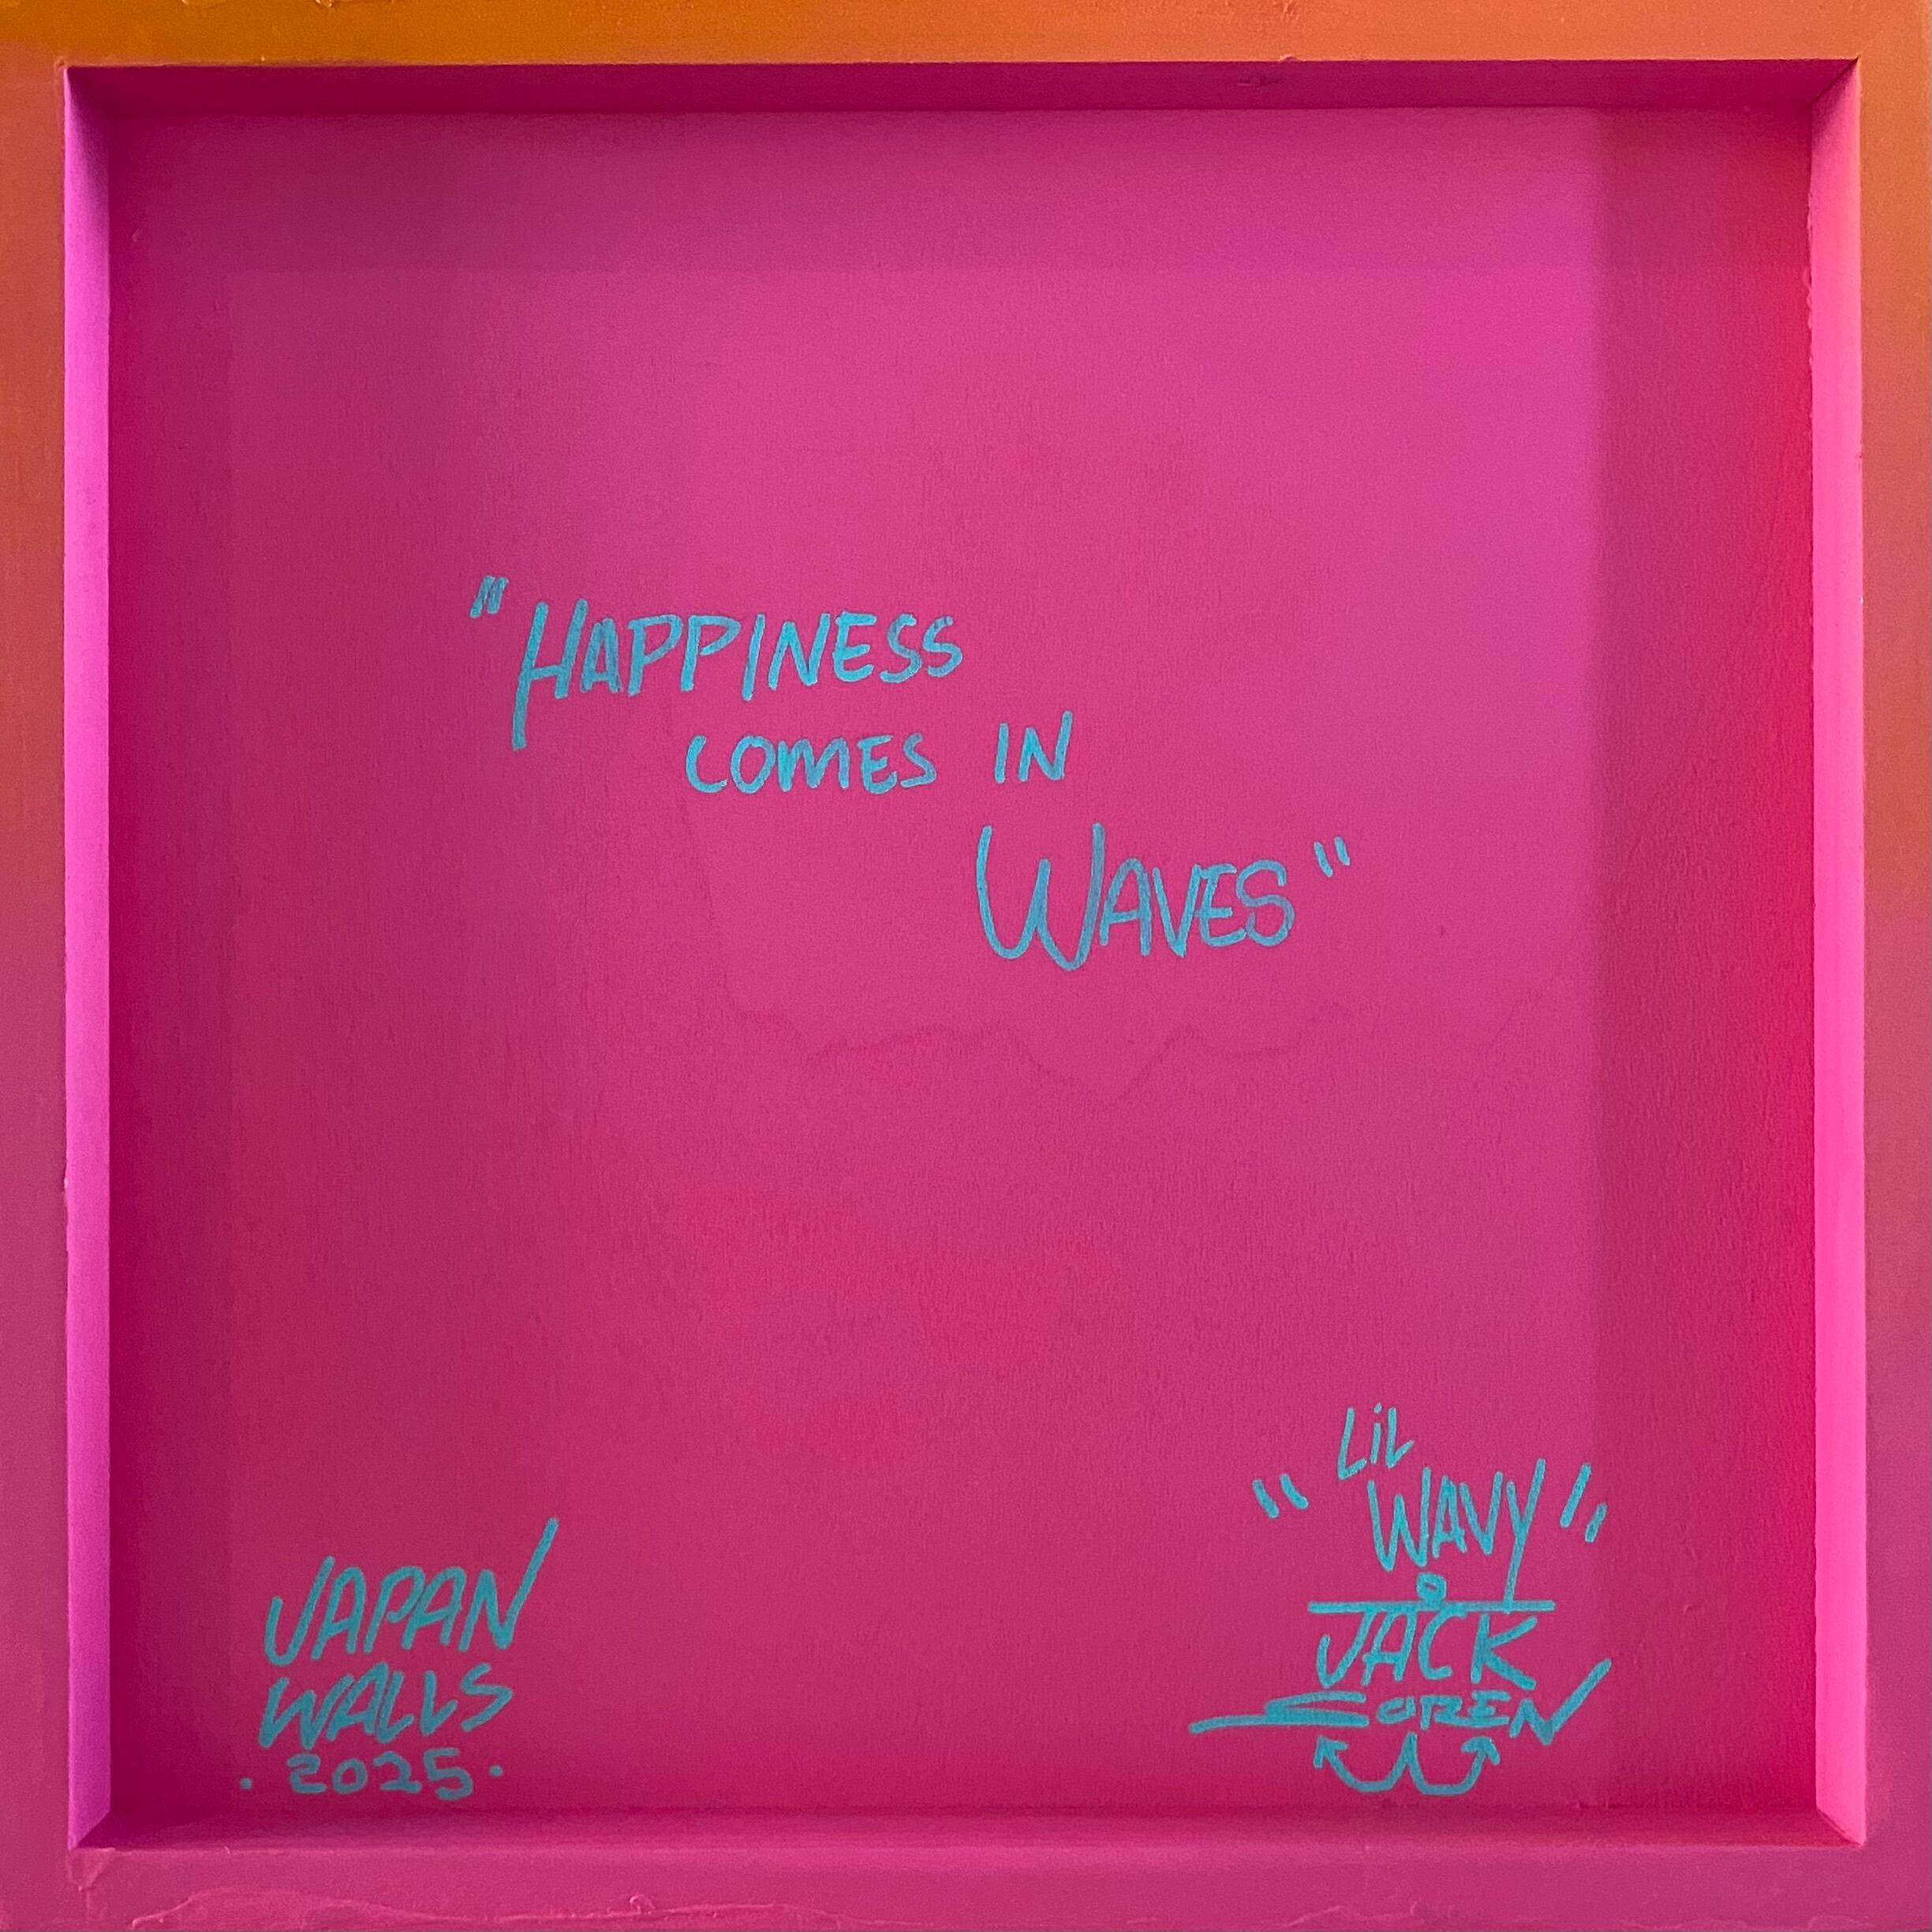 "HAPPINESS
COMES IN
WAVES"
JAPAN
WALLS
·2025·
"LiL
WAVY"
JACK
SOREN